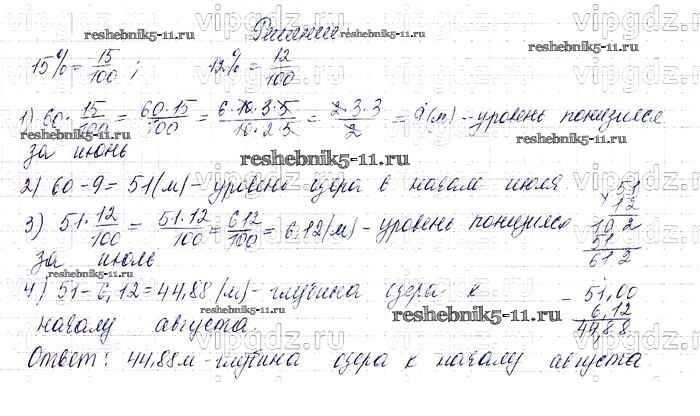 vipgdz.ru vipgdz.ru vipgdz.ru
Решение
reshebnik5-11.ru reshebnik5-11.ru
15% = 15/100 ; 12% = 12/100
reshebnik5-11.ru
1) 60 · 15/100 = 60·15/100 = 6·10·3·5/10·2·5 = 2·3·3/2 = 9 (м) - уровень понизился
reshebnik5-11.ru reshebnik5-11.ru
за июнь
reshebnik5-11.ru
2) 60 - 9 = 51 (м) - уровень озера в начале июля
3) 51 · 12/100 = 51·12/100 = 612/100 = 6,12 (м) - уровень понизился
за июль
× 51
12
102
51
612
reshebnik5-11.ru
4) 51 - 6,12 = 44,88 (м) - глубина озера к
началу августа.
- 51,00
6,12
44,88
reshebnik5-11.ru reshebnik5-11.ru
Ответ: 44,88 м - глубина озера к началу августа